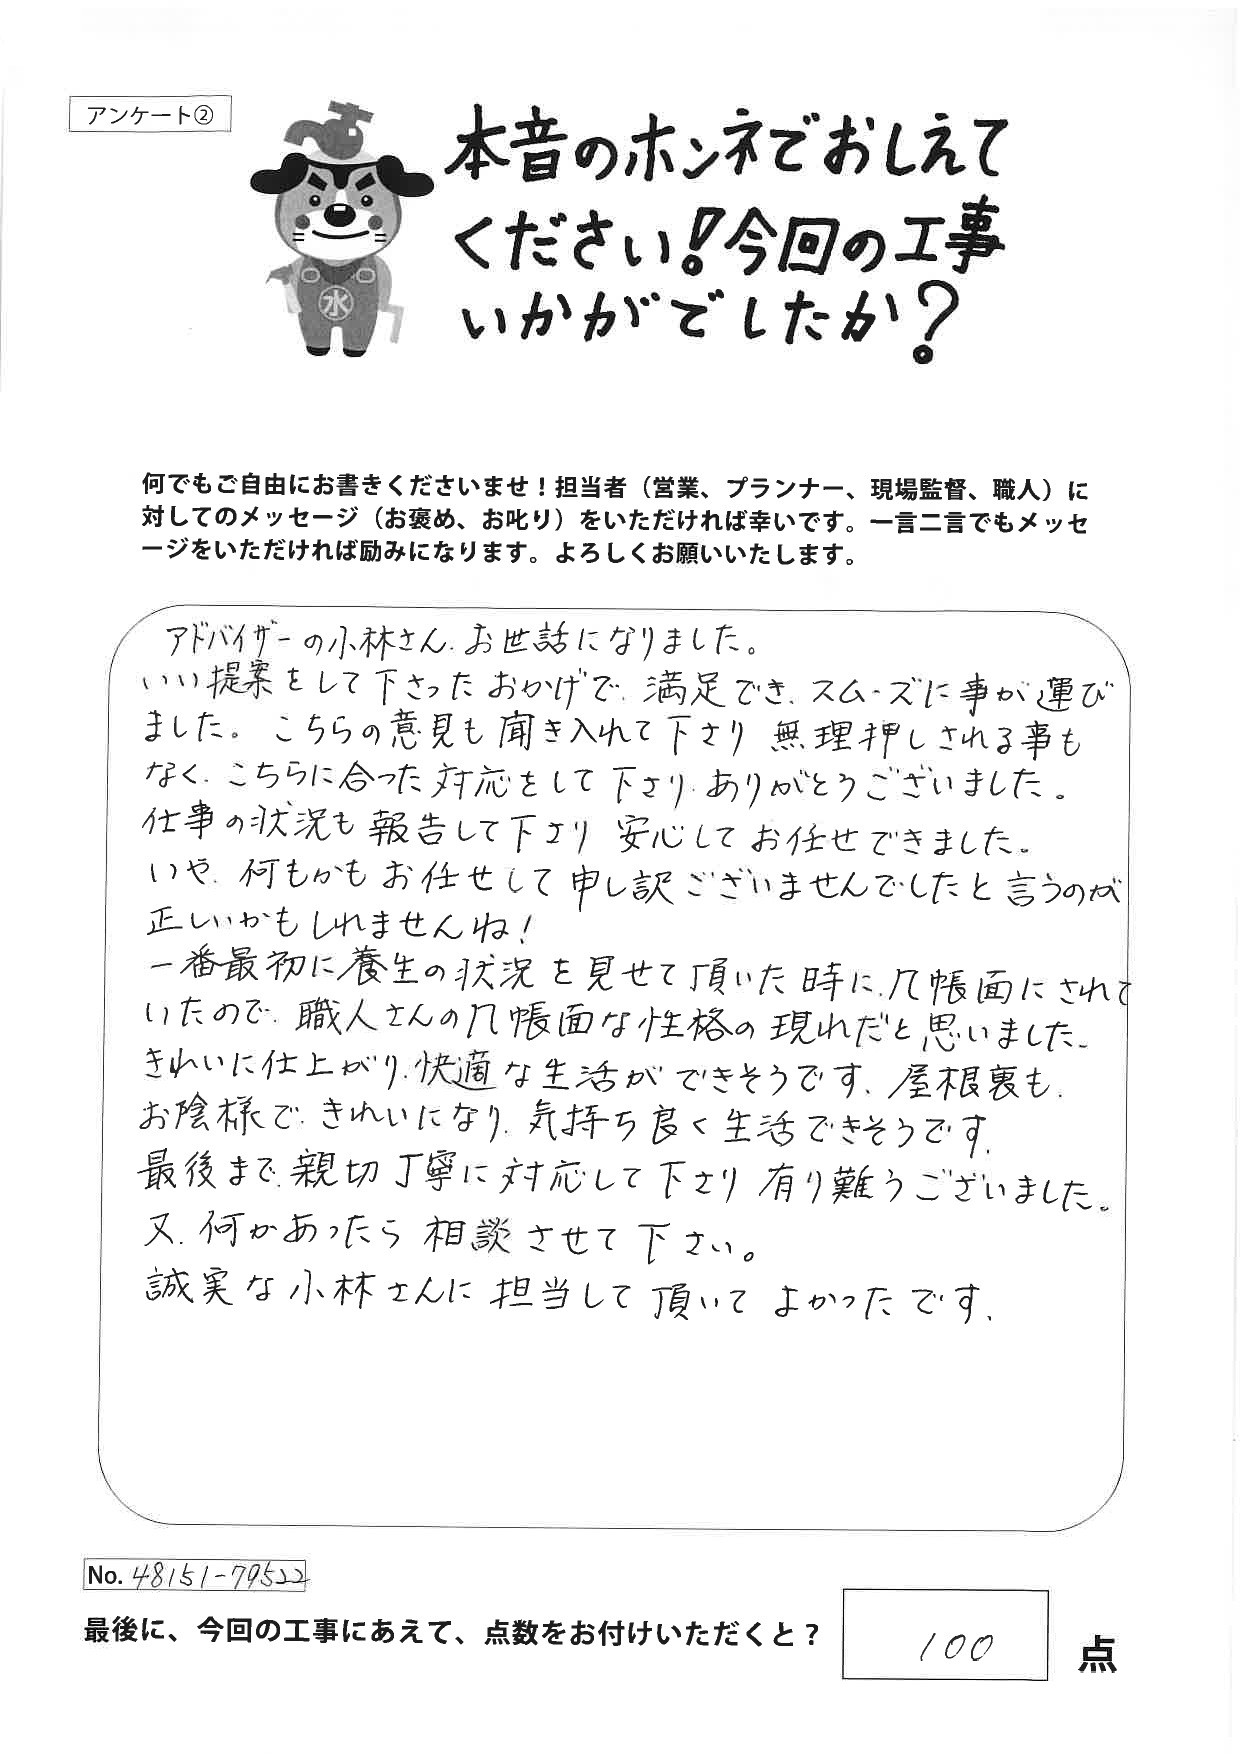 アンケート②
本音のホンネでおしえて
ください!今回の工事
いかがでしたか?
水
何でもご自由にお書きくださいませ!担当者(営業、プランナー、現場監督、職人)に
対してのメッセージ(お褒め、お叱り)をいただければ幸いです。一言二言でもメッセ
ージをいただければ励みになります。よろしくお願いいたします。
アドバイザーの小林さん、お世話になりました。
いい提案をして下さったおかげで、満足でき、スムーズに事が運び
ました。こちらの意見も聞き入れて下さり 無理押しされる事も
なく、こちらに合った対応をして下さり、ありがとうございました。
仕事の状況も報告して下さり 安心してお任せできました。
いや、何もかもお任せして申し訳ございませんでしたと言うのが
正しいかもしれませんね!
一番最初に養生の状況を見せて頂いた時に、几帳面にされて
いたので、職人さんの几帳面な性格の現れだと思いました。
きれいに仕上がり、快適な生活ができそうです、屋根裏も、
お陰様で、きれいになり、気持ち良く生活できそうです、
最後まで、親切丁寧に対応して下さり 有り難うございました。
又、何かあったら相談させて下さい。
誠実な小林さんに担当して頂いてよかったです、
No. 48151-79522
最後に、今回の工事にあえて、点数をお付けいただくと?
100
点